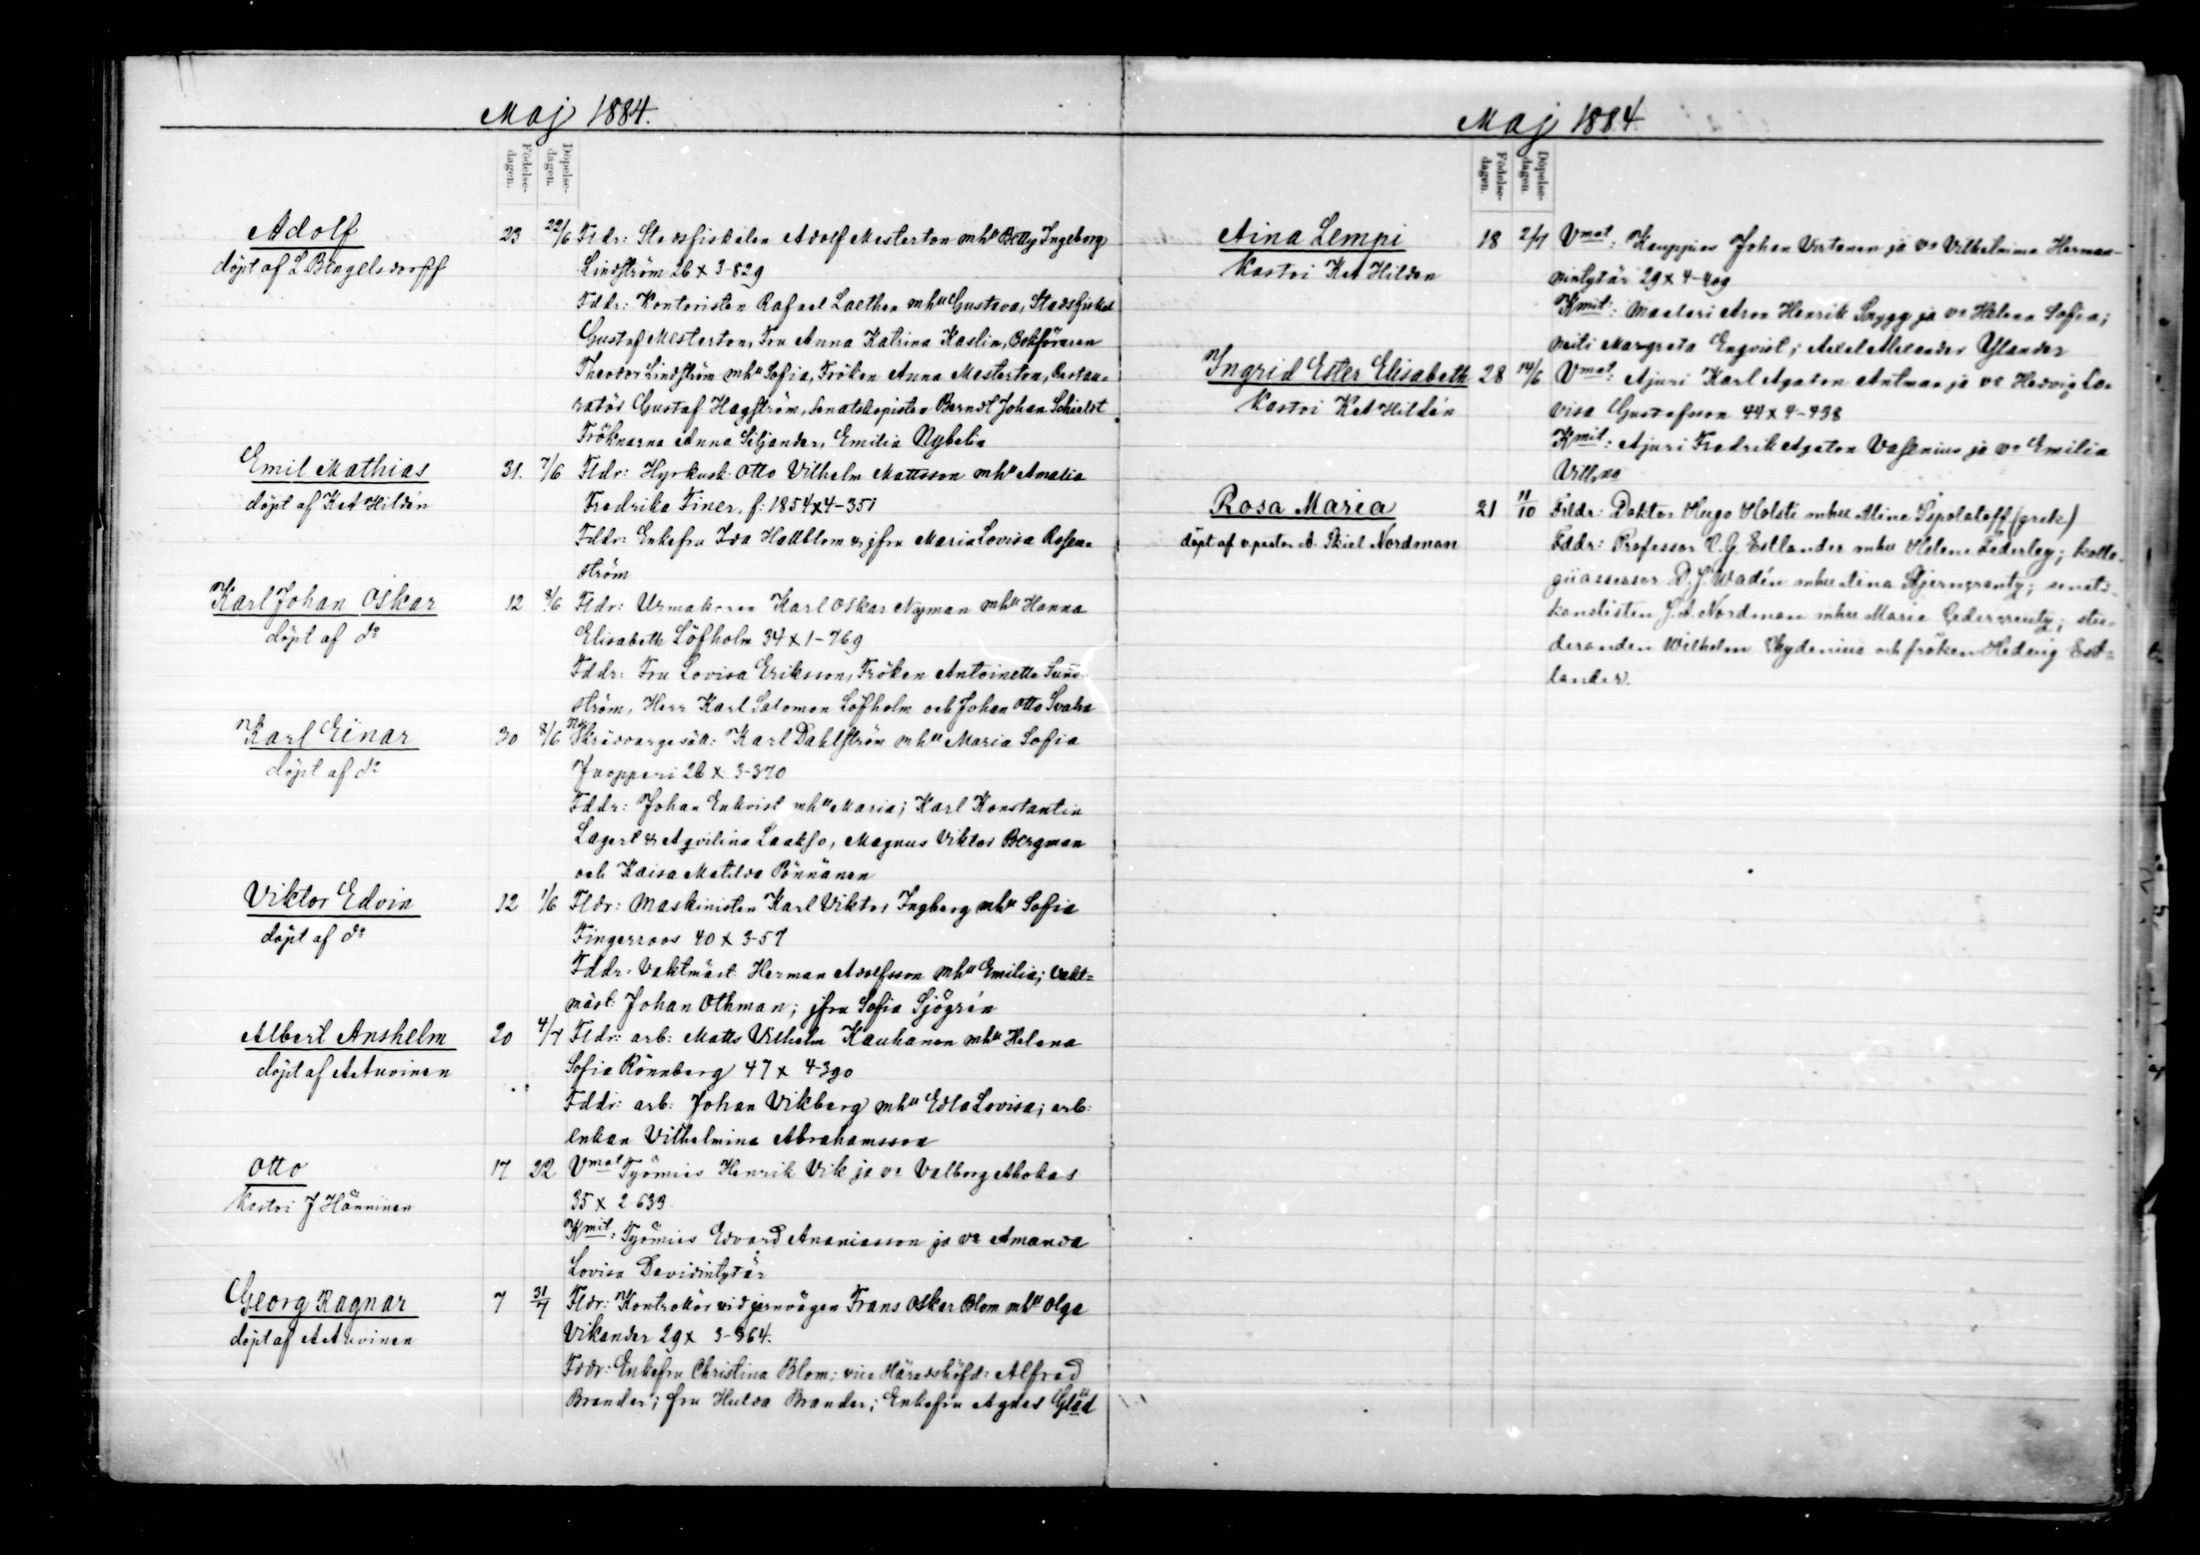 Maj 1884.
Födelse-
dagen.
Döpelse-
dagen.
Adolf
döpt af L Bengelsdorff
23 22/6 Fldr: Stadsfiskalen Adolf Mesterton mhu Betty Ingeborg
Lindström 26 x 3-829
Fddr: Kontoristen Rafael Laethen mhu Gustava, Stadsfiskal
Gustaf Mesterton, Fru Anna Katrina Kaslin, Bokföraren
Theodor Lindström mhu Sofia, Fröken Anna Mesterton, Restau-
ratör Gustaf Hagström, Senatskopisten Berndt Johan Schildt
Fröknarna Anna Siljander, Emilia Nybelin
Emil Mathias
döpt af K A Hildén
31. 7/6 Fldr: Hyrkusk: Otto Vilhelm Mattsson mhu Amalia
Fredrika Finer, f: 1854 x 4-351
Fddr: Enkefru Ida Hallblom & jfru Maria Lovisa Rosen-
ström
Karl Johan Oskar
döpt af do
12 8/6 Fldr: Urmakaren Karl Oskar Nyman mhu Hanna
Elisabeth Löfholm 34 x 1-769
Fddr: Fru Lovisa Eriksson, Fröken Antoinette Sund-
ström, Herr Karl Salomon Löfholm och Johan Otto Svahn
Karl Einar
döpt af do
30 8/6 Skräddaregesäll: Karl Dahlström mhu Maria Sofia
Juopperi 26 x 3-370
Fddr: Johan Enkvist mhu Maria; Karl Konstantin
Lagert & Aqvilina Laakso, Magnus Viktor Bergman
och Kaisa Matilda Pönnänen
Viktor Edvin
döpt af do
12 1/6 Fldr: Maskinisten Karl Viktor Ingberg mhu Sofia
Fingerroos 40 x 3-57
Fddr: Vaktmäst: Herman Adolfsson mhu Emilia; Vakt-
mäst: Johan Othman; jfru Sofia Sjögrén
Albert Anshelm
döpt af A Auvinen
20 4/7 Fldr: arb: Matts Vilhelm Kauhanen mhu Helena
Sofia Rönnberg 47 x 4-390
Fddr: arb: Johan Vikberg mhu Edla Lovisa; arb:
enkan Vilhelmina Abrahamsson
Otto
Kastoi J Hänninen
17 22 Vmat Työmies Henrik Vik ja vo Valborg Ahokas
35 x 2-633.
Kmit: Työmies Edvard Ananiasson ja vo Amanda
Lovisa Davidintytär
Georg Ragnar
döpt af A Auvinen
7 31/7 Fldr: Kontrollör vid jernvägen Frans Oskar Blom mhu Olga
Vikander 29 x 3-364.
Fddr: Enkefru Christina Blom; vice Häradshöfd: Alfred
Brander; fru Hulda Brander; Enkefru Agnes Gläd
Maj 1884.
Födelse-
dagen.
Döpelse-
dagen.
Aina Lempi
Kastoi K A Hildén
18 2/7 Vmat: Kauppias Johan Virtanen ja vo Vilhelmina Herman-
nintytär 29 x 4-409
Kmit: Maalari Aron Henrik Snygg ja vo Helena Sofia;
neiti Margreta Enqvist; Axel Alexander Ylander
Ingrid Ester Elisabeth
Kastoi K A Hildén
28 14/6 Vmat: Ajuri Karl Agaton Antman ja vo Hedvig Lo-
visa Gustafsson 44 x 4-438
Kmit: Ajuri Fredrik Agaton Vasenius ja vo Emilia
Vilhna
Rosa Maria
döpt af v.pastor A. Skiel Nordman
21 11/10 Frldr: Doktor Hugo Holsti mhu Aline Pspolatoff (grek)
Fddr: Professor C. G. Estlander mhu Helene Federley; kolle-
giiassessor D. J. Wadén mhu Aina Stjerncreutz; senats-
kanslisten J. A. Nordman mhu Marie Cedercreutz; stu-
deranden Wilhelm Chydenius och fröken Hedvig Est-
lander.